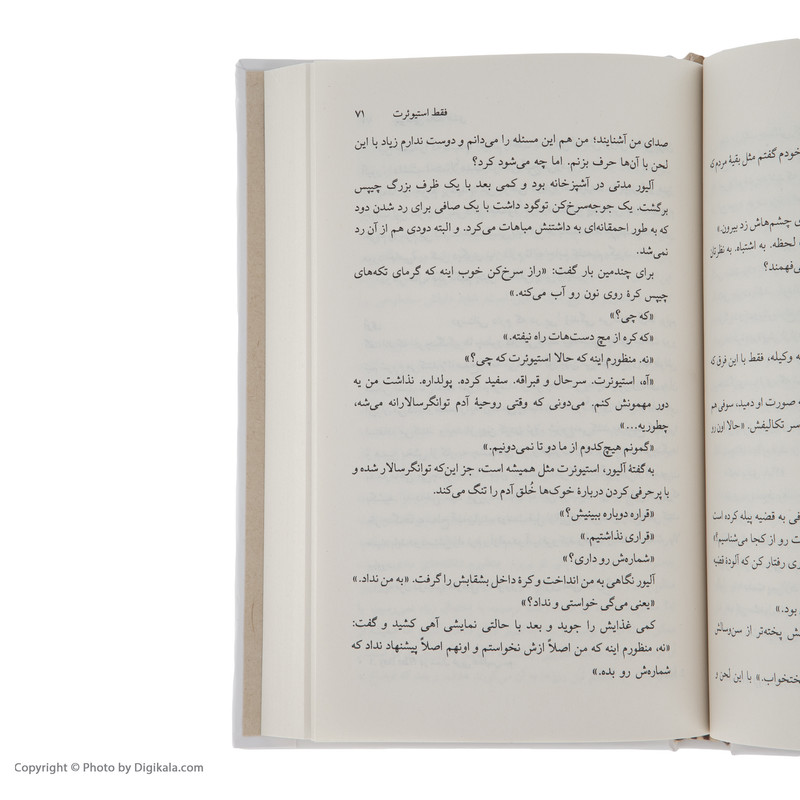 خودم گفتم مثل بقیهٔ مردم‌ی
ی چشم‌هاش زد بیرون.»
لحظه. به اشتباه. به نظرتان
ی‌فهمند؟
ه وکیله، فقط با این فرق‌ی
ه صورت او دمید، سوفی هم
سر تکالیفش. «حالا اون رو
فی به قضیه پیله کرده است
ت رو از کجا می‌شناسیم؟»
ری رفتار کن که آلودهٔ قضیهٔ
بود.»
ش پخته‌تر از سن‌وسالش
ختخواب.» با این لحن و
فقط استیوئرت ۷۱
صدای من آشنایند؛ من هم این مسئله را می‌دانم و دوست ندارم زیاد با این
لحن با آن‌ها حرف بزنم. اما چه می‌شود کرد؟
آلیور مدتی در آشپزخانه بود و کمی بعد با یک ظرف بزرگ چیپس
برگشت. یک جوجه‌سرخ‌کن توگود داشت با یک صافی برای رد شدن دود
که به طور احمقانه‌ای به داشتنش مباهات می‌کرد. و البته دودی هم از آن رد
نمی‌شد.
برای چندمین بار گفت: «راز سرخ‌کن خوب اینه که گرمای تکه‌های
چیپس کرهٔ روی نون رو آب می‌کنه.»
«که چی؟»
«که کره از مچ دست‌هات راه نیفته.»
«نه. منظورم اینه که حالا استیوئرت که چی؟»
«آه، استیوئرت. سرحال و قبراقه. سفید کرده. پولداره. نذاشت من یه
دور مهمونش کنم. می‌دونی که وقتی روحیهٔ آدم توانگرسالارانه می‌شه،
چطوریه...»
«گمونم هیچ‌کدوم از ما دو تا نمی‌دونیم.»
به گفتهٔ آلیور، استیوئرت مثل همیشه است، جز این‌که توانگرسالار شده و
با پرحرفی کردن دربارهٔ خوک‌ها خُلق آدم را تنگ می‌کند.
«قراره دوباره ببینیش؟»
«قراری نذاشتیم.»
«شماره‌ش رو داری؟»
آلیور نگاهی به من انداخت و کرهٔ داخل بشقابش را گرفت. «به من نداد.»
«یعنی می‌گی خواستی و نداد؟»
کمی غذایش را جوید و بعد با حالتی نمایشی آهی کشید و گفت:
«نه، منظورم اینه که من اصلاً ازش نخواستم و اونهم اصلاً پیشنهاد نداد که
شماره‌ش رو بده.»
Copyright © Photo by Digikala.com